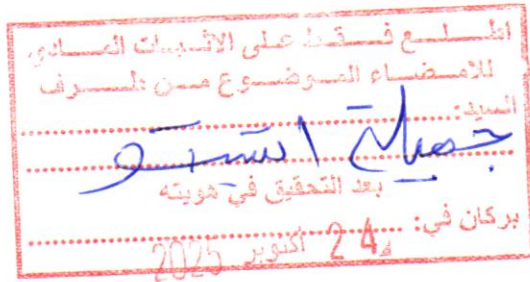 اطلع فقط على الاثبات المادي
للامضاء الموضوع من طرف
السيد:
جميلة
بعد التحقيق في هويته
بركان في: 24 أكتوبر 2025